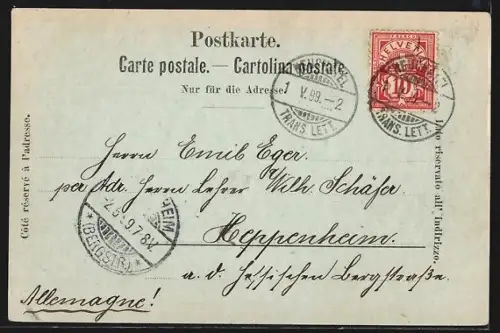 Postkarte.
Carte postale. — Cartolina postale.
Nur für die Adresse.
HELVETIA
10
1 V.99.–2
TRANS. LETT.
TRANS. LETT.
Côté réservé à l'adresse.
Lato riservato all' Indirizzo.
Herrn Emil Eger.
per Adr. Herrn Lehrer Wilh. Schäfer
Heppenheim.
a. d. Hessischen Bergstraße.
(BERGSTR.)
Allemagne!